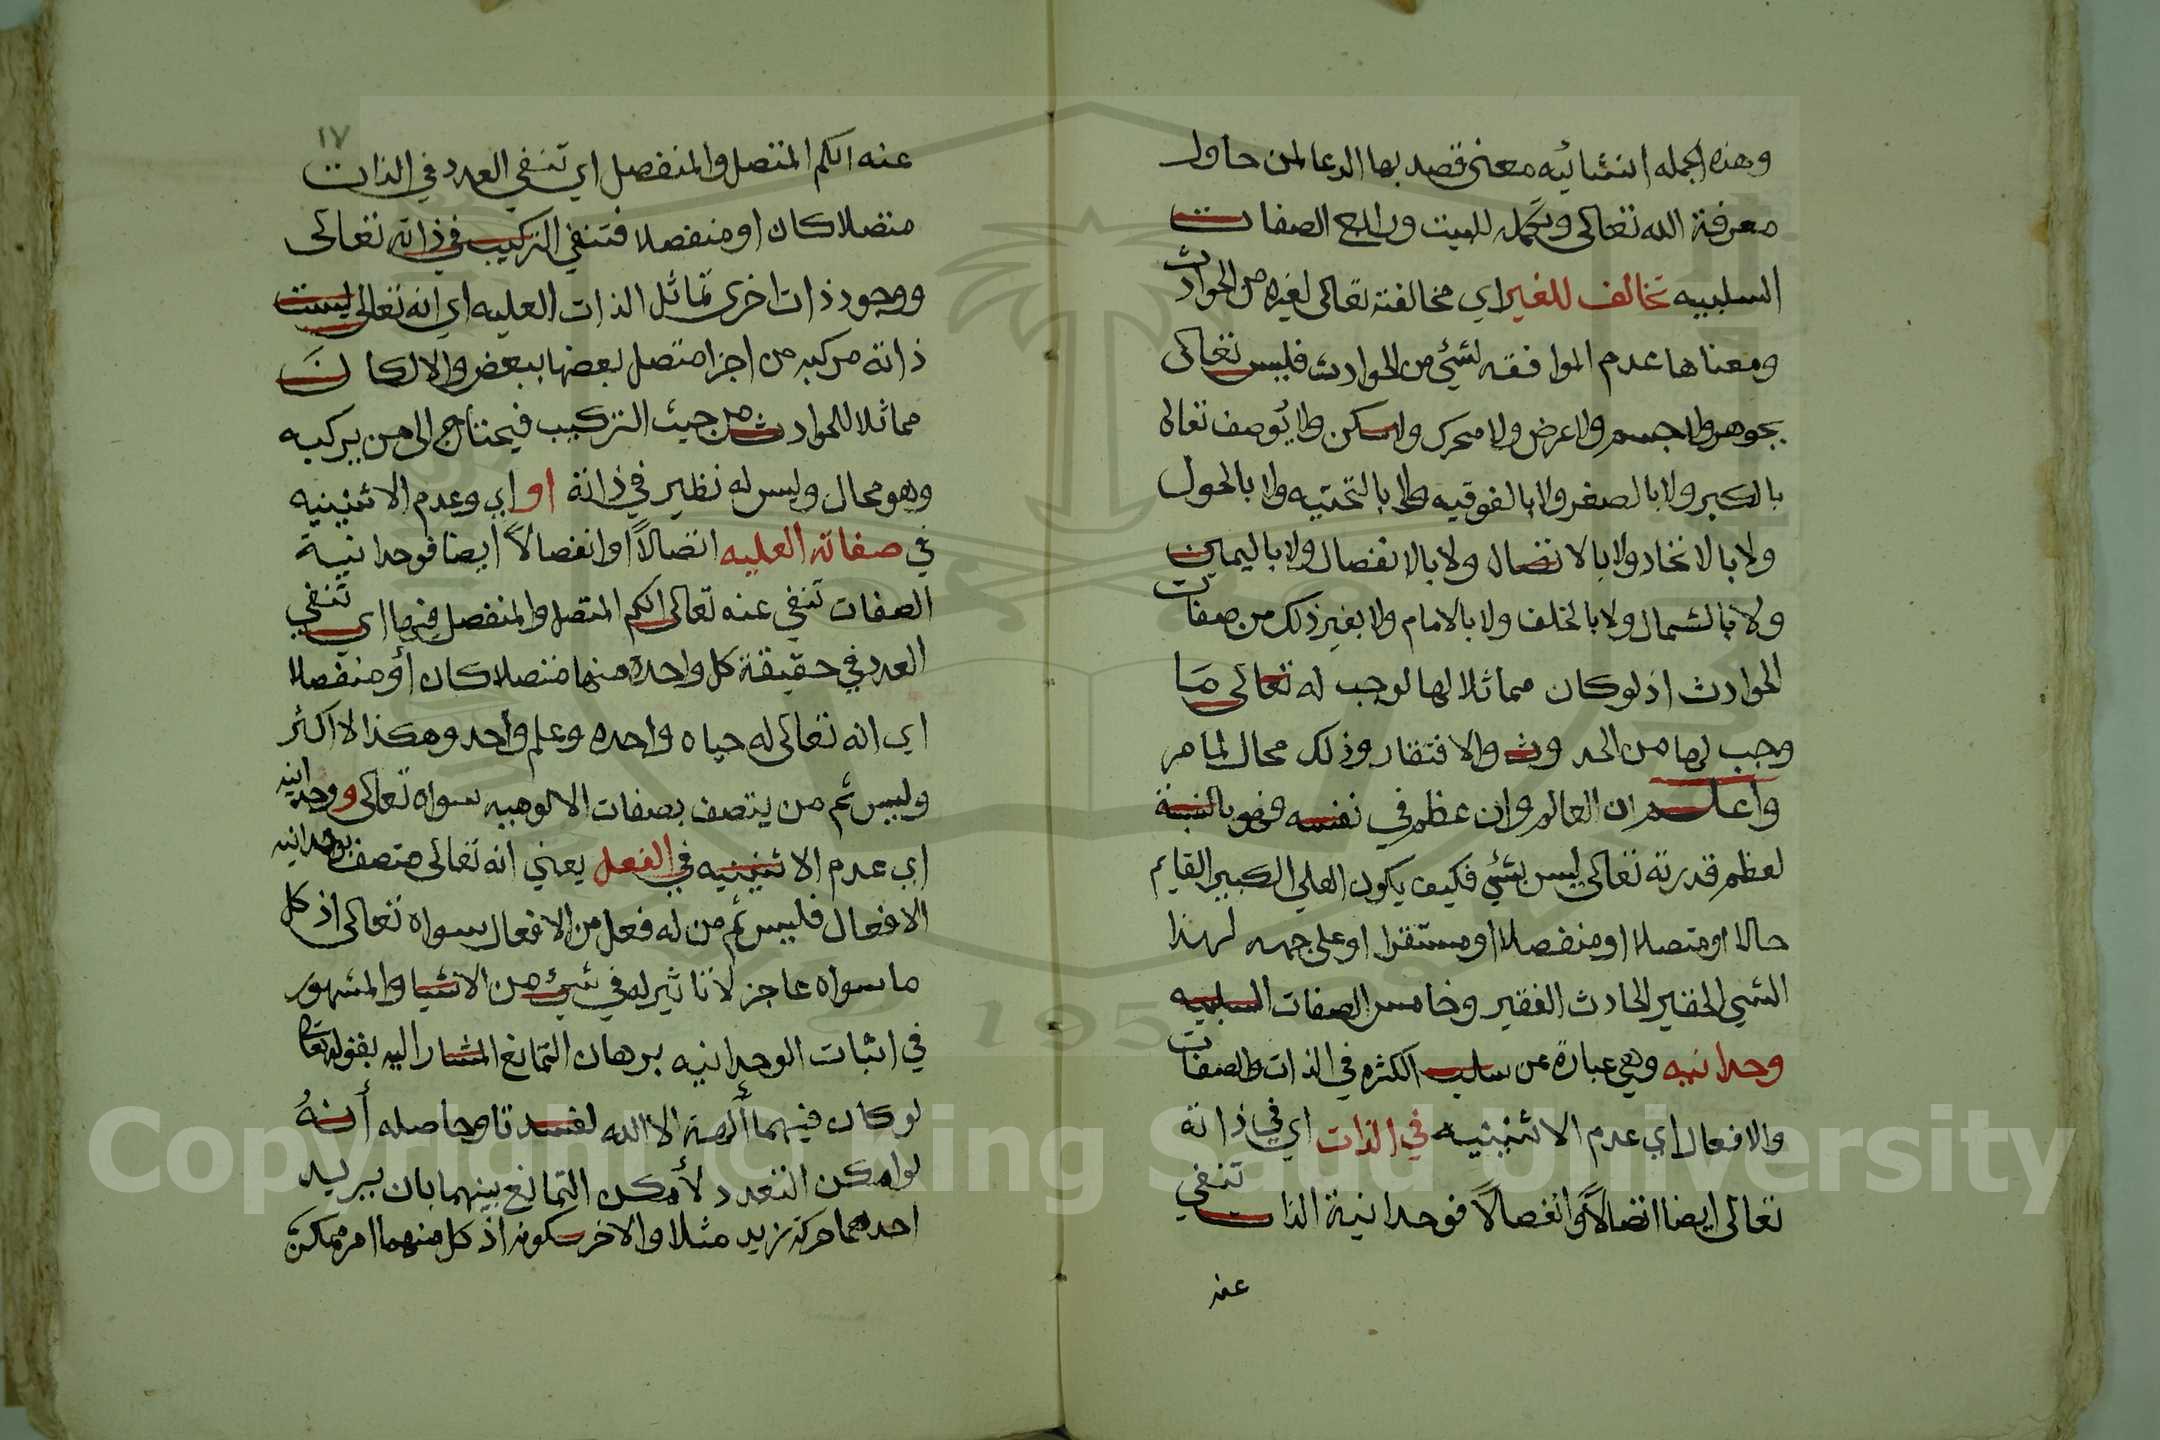 وهذه الجمله انشائيه معنى قصد بها الدعا لمن حاول
معرفة الله تعالى وتكمله للبيت ورابع الصفات
السلبيه تخالف للغير اي مخالفته تعالى لغيره من الحوادث
ومعناها عدم الموافقه لشيئ من الحوادث فليس تعالى
بجوهر ولا جسم ولا عرض ولا متحرك ولا سكن ولا يُوصف تعالى
بالكبر ولا بالصغر ولا بالفوقيه ولا بالتحتيه ولا بالحول
ولا بالاتحاد ولا بالاتصال ولا بالانفصال ولا باليمين
ولا بالشمال ولا بالخلف ولا بالامام ولا بغير ذلك من صفات
الحوادث اذ لو كان مماثلا لها لوجب له تعالى مَا
وجب لها من الحدوث والافتقار وذلك محال لما مر
واعلم ان العالم وان عظم في نفسه فهو بالنسبة
لعظم قدرته تعالى ليس بشيئ فكيف يكون العلي الكبير القايم
حالا او متصلا او منفصلا او مستقرا او على جهه لهذا
الشيئ الحقير الحادث الفقير وخامس الصفات السلبيه
وحدانيه وهي عبارة عن سلب الكثره في الذات والصفات
والافعال اي عدم الاثنينيه في الذات اي في ذاته
تعالى ايضا اتصالاً وانفصالاً فوحدانية الذات تنفي
عنه
١٧
عنه الكم المتصل والمنفصل اي تنفي العدد في الذات
متصلا كان او منفصلا فتنفي التركيب في ذاته تعالى
ووجود ذات اخرى تماثل الذات العليه اي انه تعالى ليست
ذاته مركبه من اجزا متصل بعضها ببعض والا لكان
مماثلا للحوادث من حيث التركيب فيحتاج الى من يركبه
وهو محال وليس له نظير في ذاته او اي وعدم الاثنينيه
في صفاته العليه اتصالاً او انفصالاً ايضا فوحدانية
الصفات تنفي عنه تعالى الكم المتصل والمنفصل فيها اي تنفي
العدد في حقيقة كل واحده منها متصلا كان أو منفصلا
اي انه تعالى له حياه واحده وعلم واحد وهكذا لا اكثر
وليس ثم من يتصف بصفات الالوهيه سواه تعالى ووحدانيه
اي عدم الاثنينيه في الفعل يعني انه تعالى متصف بوحدانيه
الافعال فليس ثم من له فعل من الافعال سواه تعالى اذ كل
ما سواه عاجز لا تاثير له في شيئ من الاشيا والمشهور
في اثبات الوحدانيه برهان التمانع المشار اليه بقوله تعالى
لو كان فيهما ألهة الا الله لفسدتا وحاصله أنهُ
لو امكن التعدد لأمكن التمانع بينهما بان يريد
احدهما حركة زيد مثلا والاخر سكونه اذ كل منهما امر ممكن